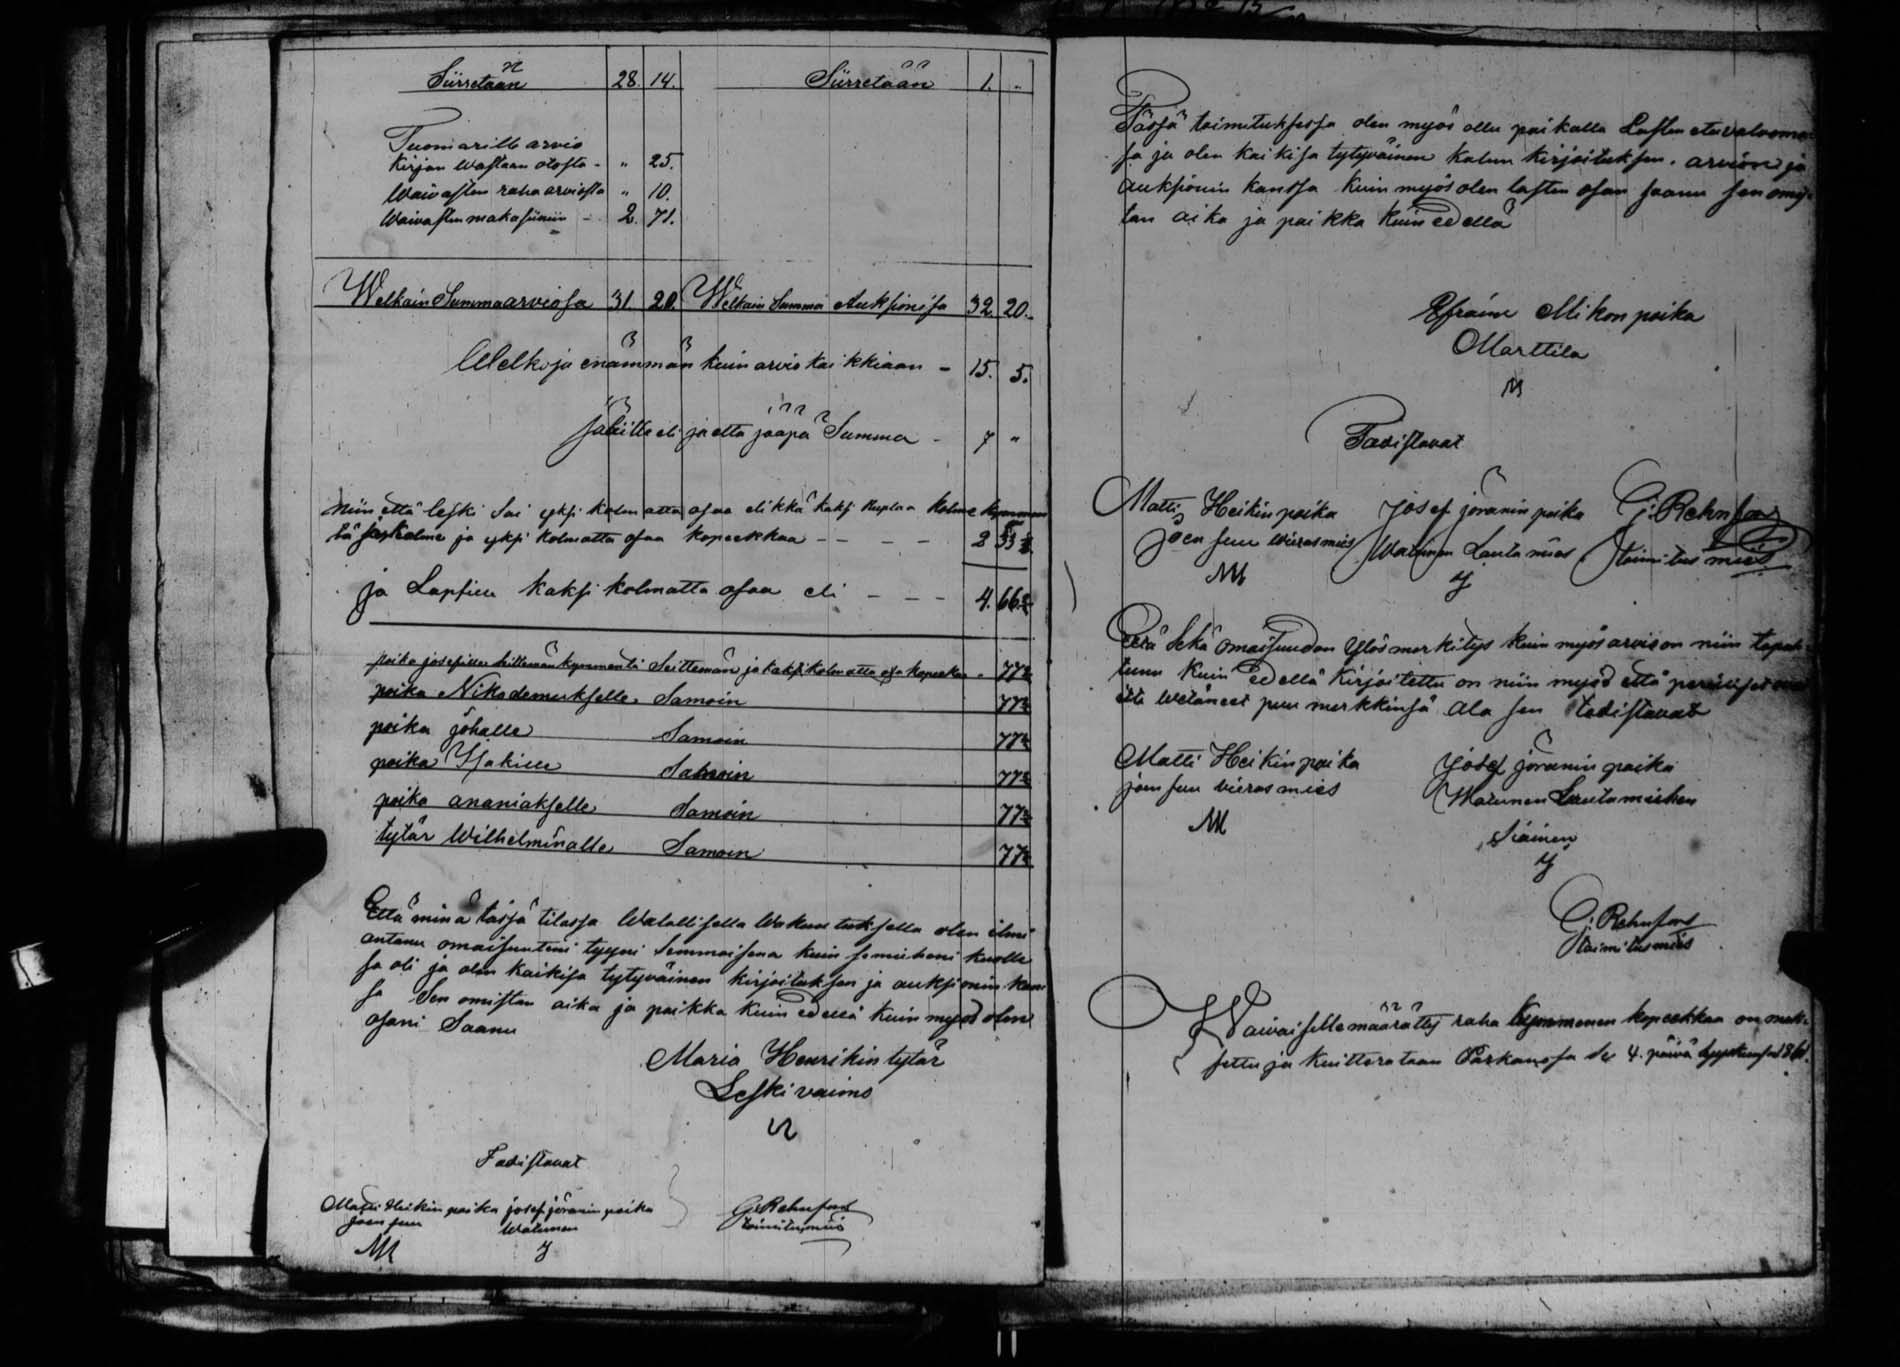 Siirretään 28. 14. Siirretään 1. "
Tuomarille arvio
kirjan wastaan otosta - " 25.
Waivasten raha arviosta " 10.
Waivasten makasiiniin - 2. 71.
Welkain Summa arviosa 31. 20. Welkain Summa Auksionisa 32. 20.
Welkoja enämmän kuin arvio kaikkiaan - 15. 5.
jälille eli jaetta jääpä Summa - 7 "
niin että leski Sai yksi kolmatta osaa elikkä kaksi Ruplaa kolme kymmen
tä kolme ja yksi kolmatta osaa kopeekkaa - - - - 2 33 ⅓
ja Lapsien kaksi kolmatta osaa eli - - - 4. 66 ⅔
poika josefille seittemän kymmentä Seittemän ja kaksi kolmatta osa kopeekaa - 77⅔
poika Nikodemukselle Samoin 77⅔
poika johalle Samoin 77⅔
poika Isakille Samoin 77⅔
poika ananiakselle Samoin 77⅔
tytär Wilhelminalle Samoin 77⅔
Että minä tässä tilassa Walallisella Wakuutuksella olen ilmi
antanu omaisuuteni tyyni Semmoisena kuin se mieheni kuolle
sa oli ja olen kaikisa tytyväinen kirjoituksen ja auksionin kan
sa Sen omistan aika ja paikka kuin edellä kuin myös olen
osani Saanu
Maria Henrikin tytär
Leski vaimo
Todistavat
Matti Heikin poika josef jöranin poika G: Rehnfors
Joen suu Watunen toimitusmies
Tässä toimituksessa olen myös ollu paikalla Lasten etuvalvoma
sa ja olen kaikisa tytyväinen kalun kirjoituksen. arvion ja
auksionin kanssa kuin myös olen lasten osan saanu sen omis
tan aika ja paikka kuin edellä
Efraim Mikon poika
Marttila
Todistavat
Matti Heikin poika Josef jöranin poika G: Rehnfors
joen suu vierasmies Watunen Lautamies toimitus mies
Että Sekä omaisuudan Ylösmerkitys kuin myös arvio on niin tapah
tunu kuin edellä kirjoitettu on niin myös että perilliset
itte wetäneet puu merkkinsä ala sen todistavat
Matti Heikin poika Josef jöranin poika
joen suu vieras mies Watunen Lautamiehen
Siainen
G: Rehnfors
toimitusmies
Waivaiselle määrätty raha kymmenen kopeekkaa on mak-
settu ja kuitterataan Parkanosa se 4. päivä